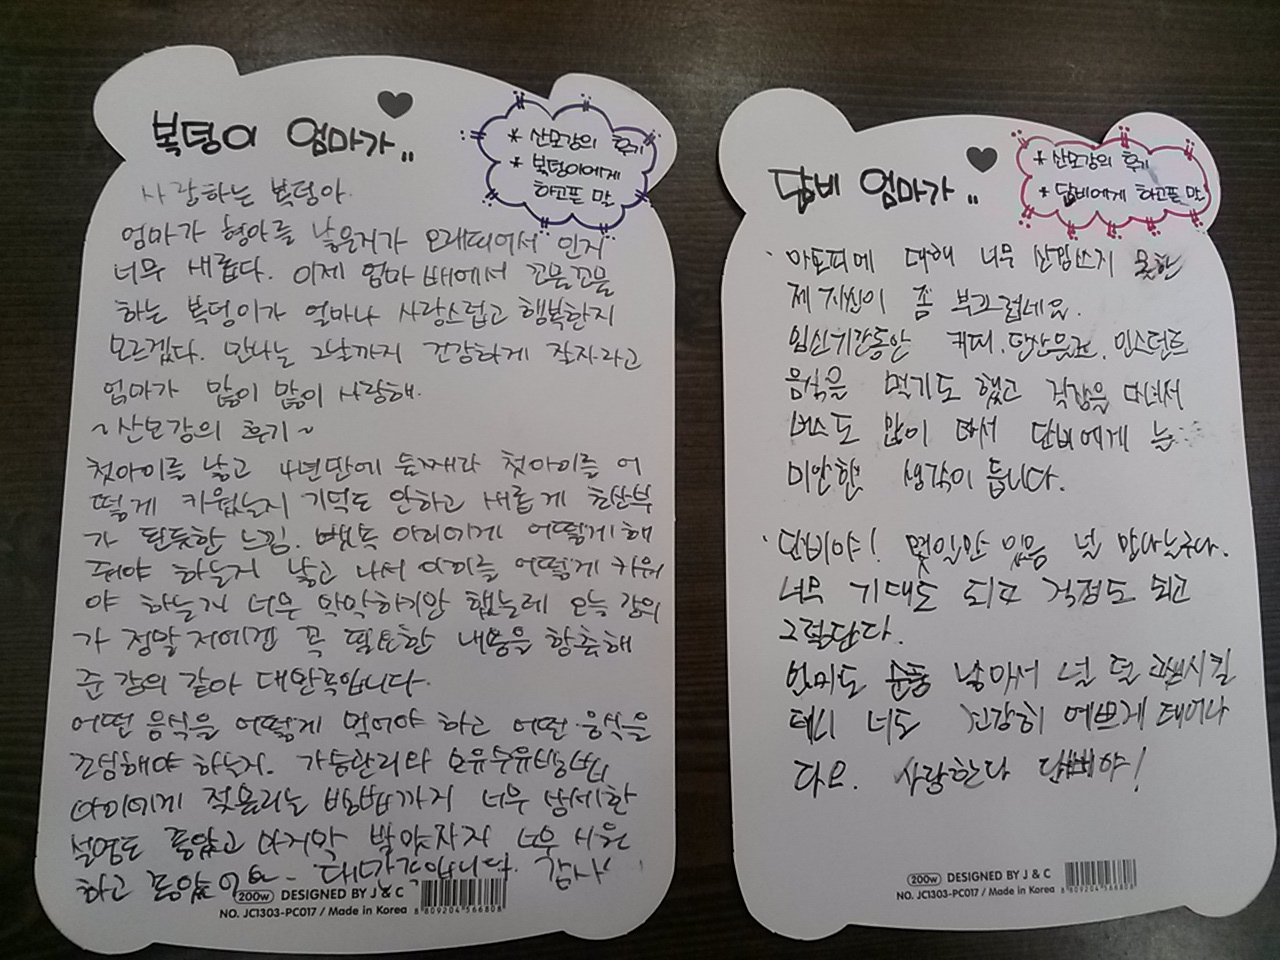 복덩이 엄마가..
* 산모강의 후기
* 복덩이에게
하고픈 말
사랑하는 복덩아.
엄마가 형아를 낳은거가 오래되어서 인지
너무 새롭다. 이제 엄마 배에서 꼬물꼬물
하는 복덩이가 얼마나 사랑스럽고 행복한지
모르겠다. 만나는 그날까지 건강하게 잘자라고
엄마가 많이 많이 사랑해.
~산모강의 후기~
첫아이를 낳고 4년만에 둘째라 첫아이를 어
떻게 키웠는지 기억도 안하고 새롭게 초산부
가 된듯한 느낌. 뱃속 아이에게 어떻게해
줘야 하는거 낳고 나서 아이를 어떻게 키워
야 하는거 너무 막막하지만 했는데 오늘 강의
가 정말 저에겐 꼭 필요한 내용을 함축해
준 강의 같아 대만족입니다.
어떤 음식을 어떻게 먹어야 하고 어떤 음식을
조심해야 하는지. 가슴관리와 모유수유방법
아이에게 젖물리는 방법까지 너무 상세한
설명도 좋았고 마지막 발마사지 너무 시원
하고 좋았어요~ 대만족입니다. 감사
200w DESIGNED BY J & C
NO. JC1303-PC017 / Made in Korea
8 809204 566808
담비 엄마가..
* 산모강의 후기
* 담비에게 하고픈 말
아토피에 대해 너무 신경쓰지 못한
제 자신이 좀 부끄럽네요.
임신기간동안 커피, 탄산음료, 인스턴트
음식을 먹기도 했고 직장을 다녀서
버스도 많이 타서 담비에게 늘
미안한 생각이 듭니다.
담비야! 몇일만 있음 널 만나는구나.
너무 기대도 되고 걱정도 되고
그렇단다.
엄마도 운동 남아서 널 덜 고생시킬
테니 너도 건강히 예쁘게 태어나
다오. 사랑한다 담비야!
200w DESIGNED BY J & C
NO. JC1303-PC017 / Made in Korea
8 809204 566808